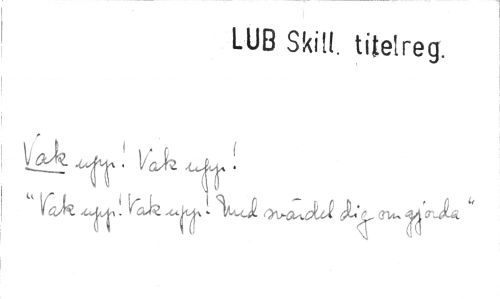 LUB Skill. titelreg.
Vak upp! Vak upp!
"Vak upp! Vak upp! Med svärdet dig omgjorda"